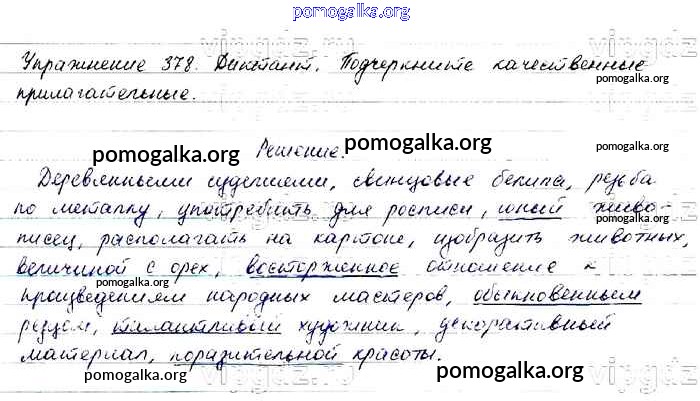 pomogalka.org
Упражнение 378. Диктант. Подчеркните качественные
pomogalka.org
прилагательные.
pomogalka.org Решение. pomogalka.org pomogalka.org
Деревянными изделиями, свинцовые белила, резьба
по металлу, употребить для росписи, юный живо-
писец, располагать на картоне, изобразить животных,
величиной с орех, восторженное отношение к
pomogalka.org pomogalka.org
произведениям народных мастеров, обыкновенным
резцом, талантливый художник, декоративный
материал, поразительной красоты.
pomogalka.org pomogalka.org vipgdz.ru